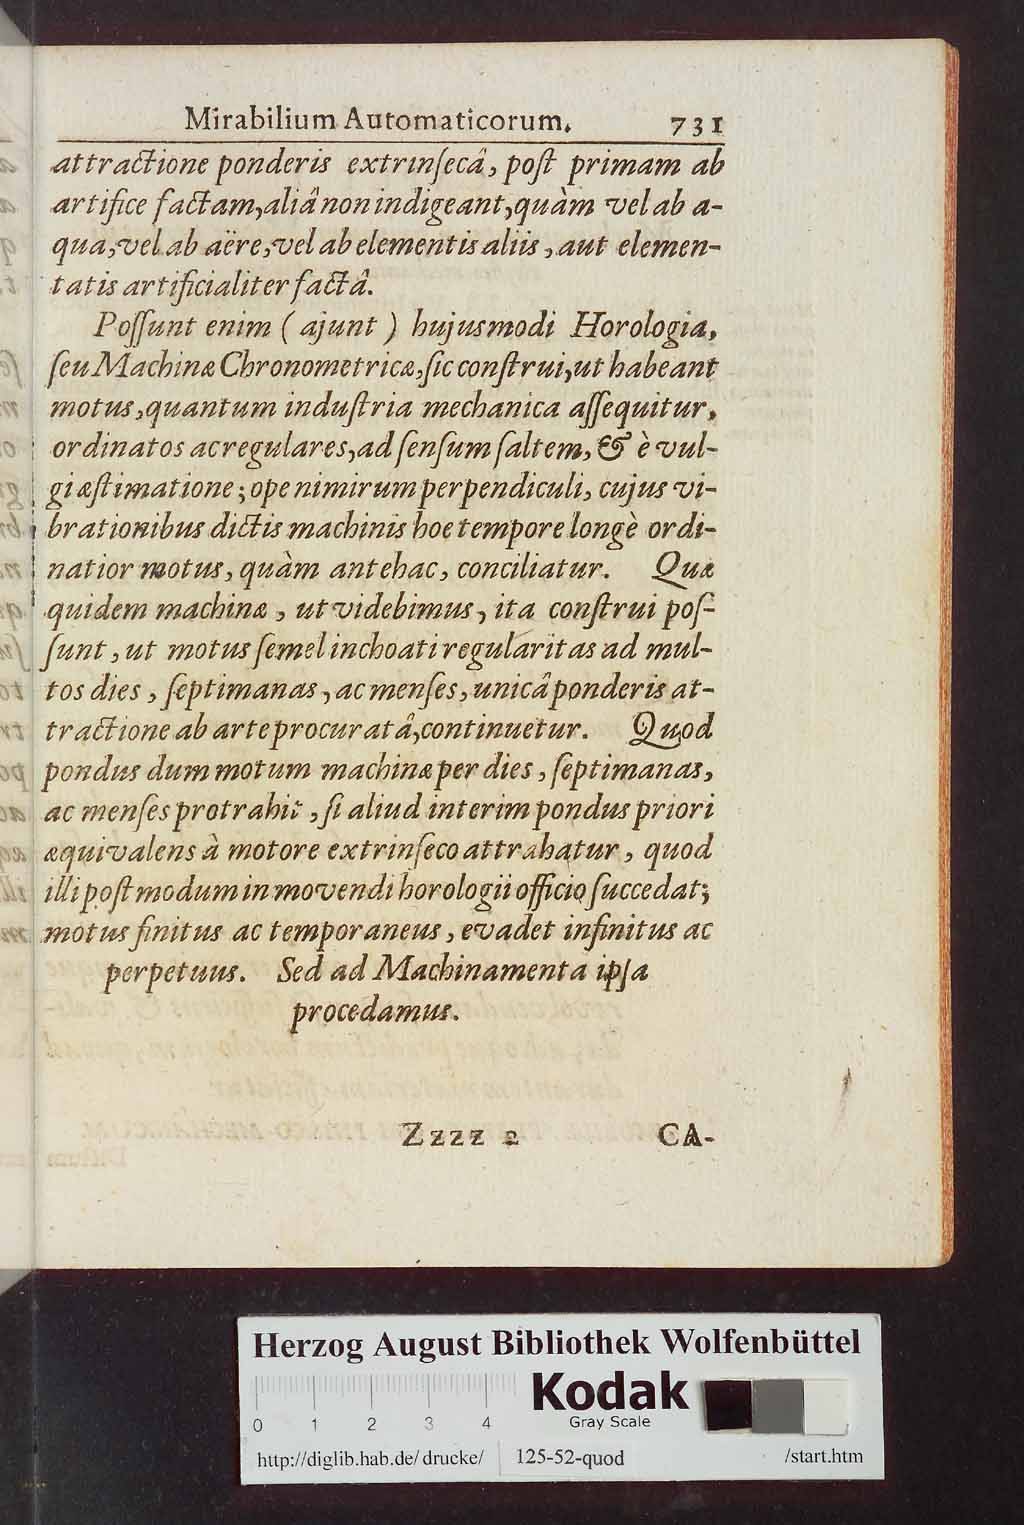 Mirabilium Automaticorum. 731
attractione ponderis extrinſecâ, poſt primam ab
artifice factam, aliâ non indigeant, quàm vel ab a-
qua, vel ab aëre, vel ab elementis aliis, aut elemen-
tatis artificialiter factâ.
Poſſunt enim ( ajunt ) hujusmodi Horologia,
ſeu Machinæ Chronometricæ, ſic conſtrui, ut habeant
motus, quantum induſtria mechanica aſſequitur,
ordinatos ac regulares, ad ſenſum ſaltem, & è vul-
gi æſtimatione; ope nimirum perpendiculi, cujus vi-
brationibus dictis machinis hoc tempore longè ordi-
natior motus, quàm antehac, conciliatur. Quæ
quidem machinæ, ut videbimus, ita conſtrui poſ-
ſunt, ut motus ſemel inchoati regularitas ad mul-
tos dies, ſeptimanas, ac menſes, unicâ ponderis at-
tractione ab arte procuratâ, continuetur. Quod
pondus dum motum machinæ per dies, ſeptimanas,
ac menſes protrahit, ſi aliud interim pondus priori
æquivalens à motore extrinſeco attrahatur, quod
illi poſtmodum in movendi horologii officio ſuccedat;
motus finitus ac temporaneus, evadet infinitus ac
perpetuus. Sed ad Machinamenta ipſa
procedamus.
Zzzz 2 CA-
Herzog August Bibliothek Wolfenbüttel
Kodak
Gray Scale
0 1 2 3 4
http://diglib.hab.de/drucke/ 125-52-quod /start.htm